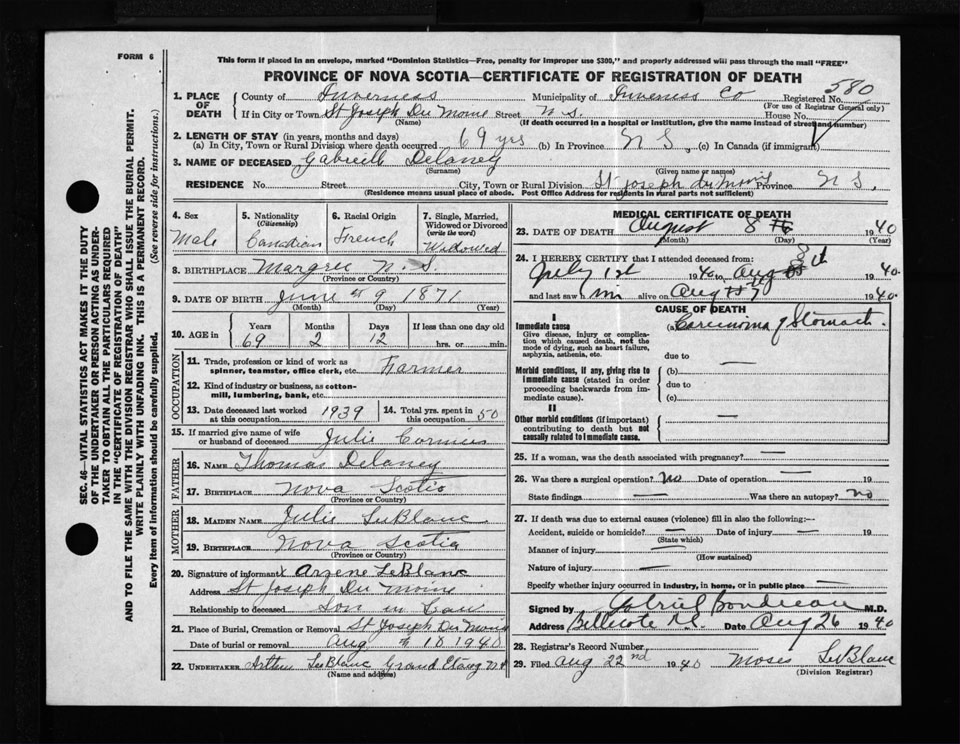 FORM 6
This form if placed in an envelope, marked "Dominion Statistics—Free, penalty for improper use $300," and properly addressed will pass through the mail "FREE"
PROVINCE OF NOVA SCOTIA—CERTIFICATE OF REGISTRATION OF DEATH
580
1. PLACE OF DEATH County of Inverness Municipality of Inverness Co Registered No.
(For use of Registrar General only)
If in City or Town St Joseph Du Moine Street N.S. House No.
(Name) (If death occurred in a hospital or institution, give the name instead of street and number)
2. LENGTH OF STAY (in years, months and days)
(a) In City, Town or Rural Division where death occurred 69 yrs (b) In Province N S, (c) In Canada (if immigrant)
3. NAME OF DECEASED Gabriell Delaney
(Surname) (Given name or names)
RESIDENCE No. Street City, Town or Rural Division St Joseph du Moine Province N S.
(Residence means usual place of abode. Post Office Address for residents in rural parts not sufficient)
SEC. 46—VITAL STATISTICS ACT MAKES IT THE DUTY
OF THE UNDERTAKER OR PERSON ACTING AS UNDER-
TAKER TO OBTAIN ALL THE PARTICULARS REQUIRED
IN THE "CERTIFICATE OF REGISTRATION OF DEATH"
AND TO FILE THE SAME WITH THE DIVISION REGISTRAR WHO SHALL ISSUE THE BURIAL PERMIT.
WRITE PLAINLY WITH UNFADING INK. THIS IS A PERMANENT RECORD.
Every item of information should be carefully supplied. (See reverse side for instructions.)
4. Sex Male
5. Nationality (Citizenship) Canadian
6. Racial Origin French
7. Single, Married, Widowed or Divorced (write the word) Widowed
8. BIRTHPLACE Margree N.S.
(Province or Country)
9. DATE OF BIRTH June 9 1871
(Month) (Day) (Year)
10. AGE in Years 69 Months 2 Days 12 If less than one day old hrs. or min.
OCCUPATION
11. Trade, profession or kind of work as spinner, teamster, office clerk, etc. Farmer
12. Kind of industry or business, as cotton-mill, lumbering, bank, etc.
13. Date deceased last worked at this occupation 1939
14. Total yrs. spent in this occupation 50
15. If married give name of wife or husband of deceased Julie Cormier
FATHER
16. NAME Thomas Delaney
17. BIRTHPLACE Nova Scotia
(Province or Country)
MOTHER
18. MAIDEN NAME Julie LeBlanc
19. BIRTHPLACE Nova Scotia
(Province or Country)
20. Signature of informant x Arsene LeBlanc
Address St Joseph Du Moine
Relationship to deceased Son in Law
21. Place of Burial, Cremation or Removal St Joseph Du Moine
Date of burial or removal Aug 10 1940
22. UNDERTAKER Arthur LeBlanc Grand Etang N S
(Name and address)
MEDICAL CERTIFICATE OF DEATH
23. DATE OF DEATH August 8 th 1940
(Month) (Day) (Year)
24. I HEREBY CERTIFY that I attended deceased from:
July 1st 1940 to Aug 8th 1940
and last saw him alive on Aug 7 1940
CAUSE OF DEATH
I
Immediate cause (a) Carcinoma of Stomach.
Give disease, injury or complication which caused death, not the mode of dying, such as heart failure, asphyxia, asthenia, etc.
due to —
Morbid conditions, if any, giving rise to immediate cause (stated in order proceeding backwards from immediate cause).
(b) —
due to
(c)
II
Other morbid conditions (if important) contributing to death but not causally related to immediate cause. —
25. If a woman, was the death associated with pregnancy? —
26. Was there a surgical operation? no Date of operation — 19
State findings — Was there an autopsy? no
27. If death was due to external causes (violence) fill in also the following:—
Accident, suicide or homicide? — Date of injury — 19
(State which)
Manner of injury —
(How sustained)
Nature of injury —
Specify whether injury occurred in industry, in home, or in public place —
Signed by Gabriel Boudreau M.D.
Address Bellecote N.S. Date Aug 26 1940
28. Registrar's Record Number
29. Filed Aug 22nd 1940 Moses LeBlanc
(Division Registrar)